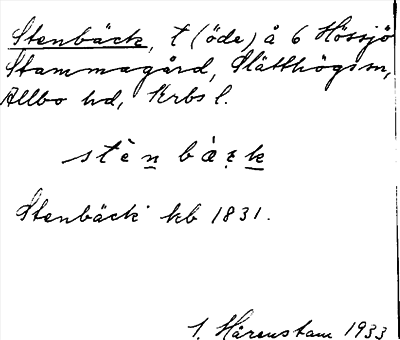 Stenbäck, t (öde) å 6 Hössjö
Stammagård, Slätthögs sn,
Allbo hd, Krbs l.
stènbàʀk
Stenbäck kb 1831.
I. Hårenstam 1933